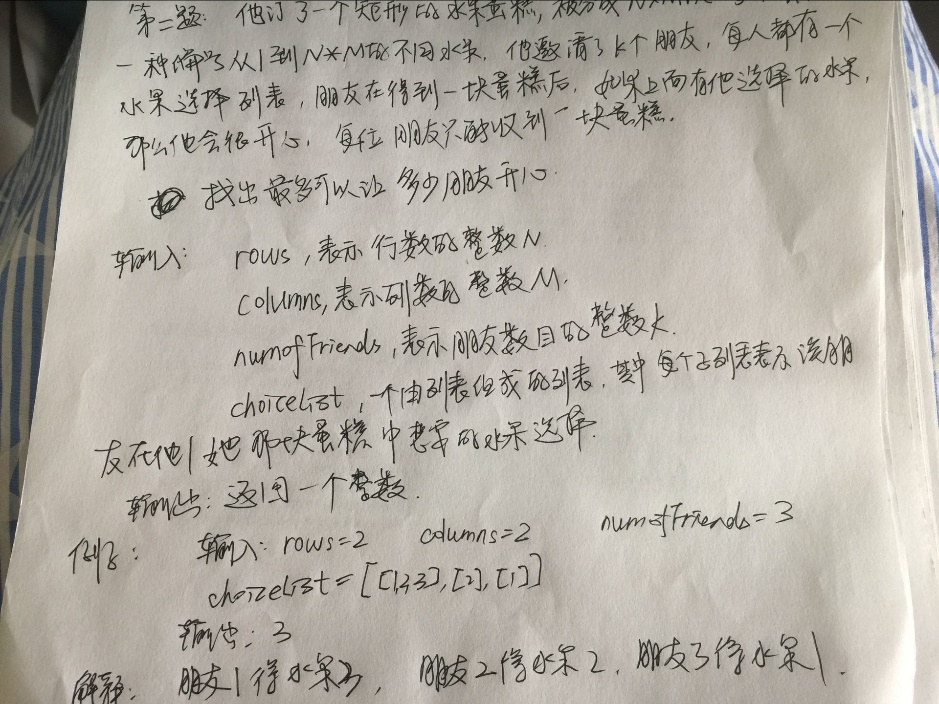 第二题: 他订了一个矩形的水果蛋糕, 被分成N*M
一种编号从1到N*M的不同水果. 他邀请了K个朋友, 每人都有一个
水果选择列表, 朋友在得到一块蛋糕后, 如果上面有他选择的水果,
那么他会很开心. 每位朋友只能收到一块蛋糕.
找出最多可以让多少朋友开心.
输入: rows, 表示行数的整数N.
columns, 表示列数的整数M.
numofFriends, 表示朋友数目的整数K.
choicelist, 一个由列表组成的列表, 其中每个子列表表示该朋
友在他|她那块蛋糕中想要的水果选择.
输出: 返回一个整数.
例子: 输入: rows=2 columns=2 numofFriends=3
choicelist=[[1,2,3],[2],[1]]
输出: 3
解释: 朋友1得水果3, 朋友2得水果2, 朋友3得水果1.